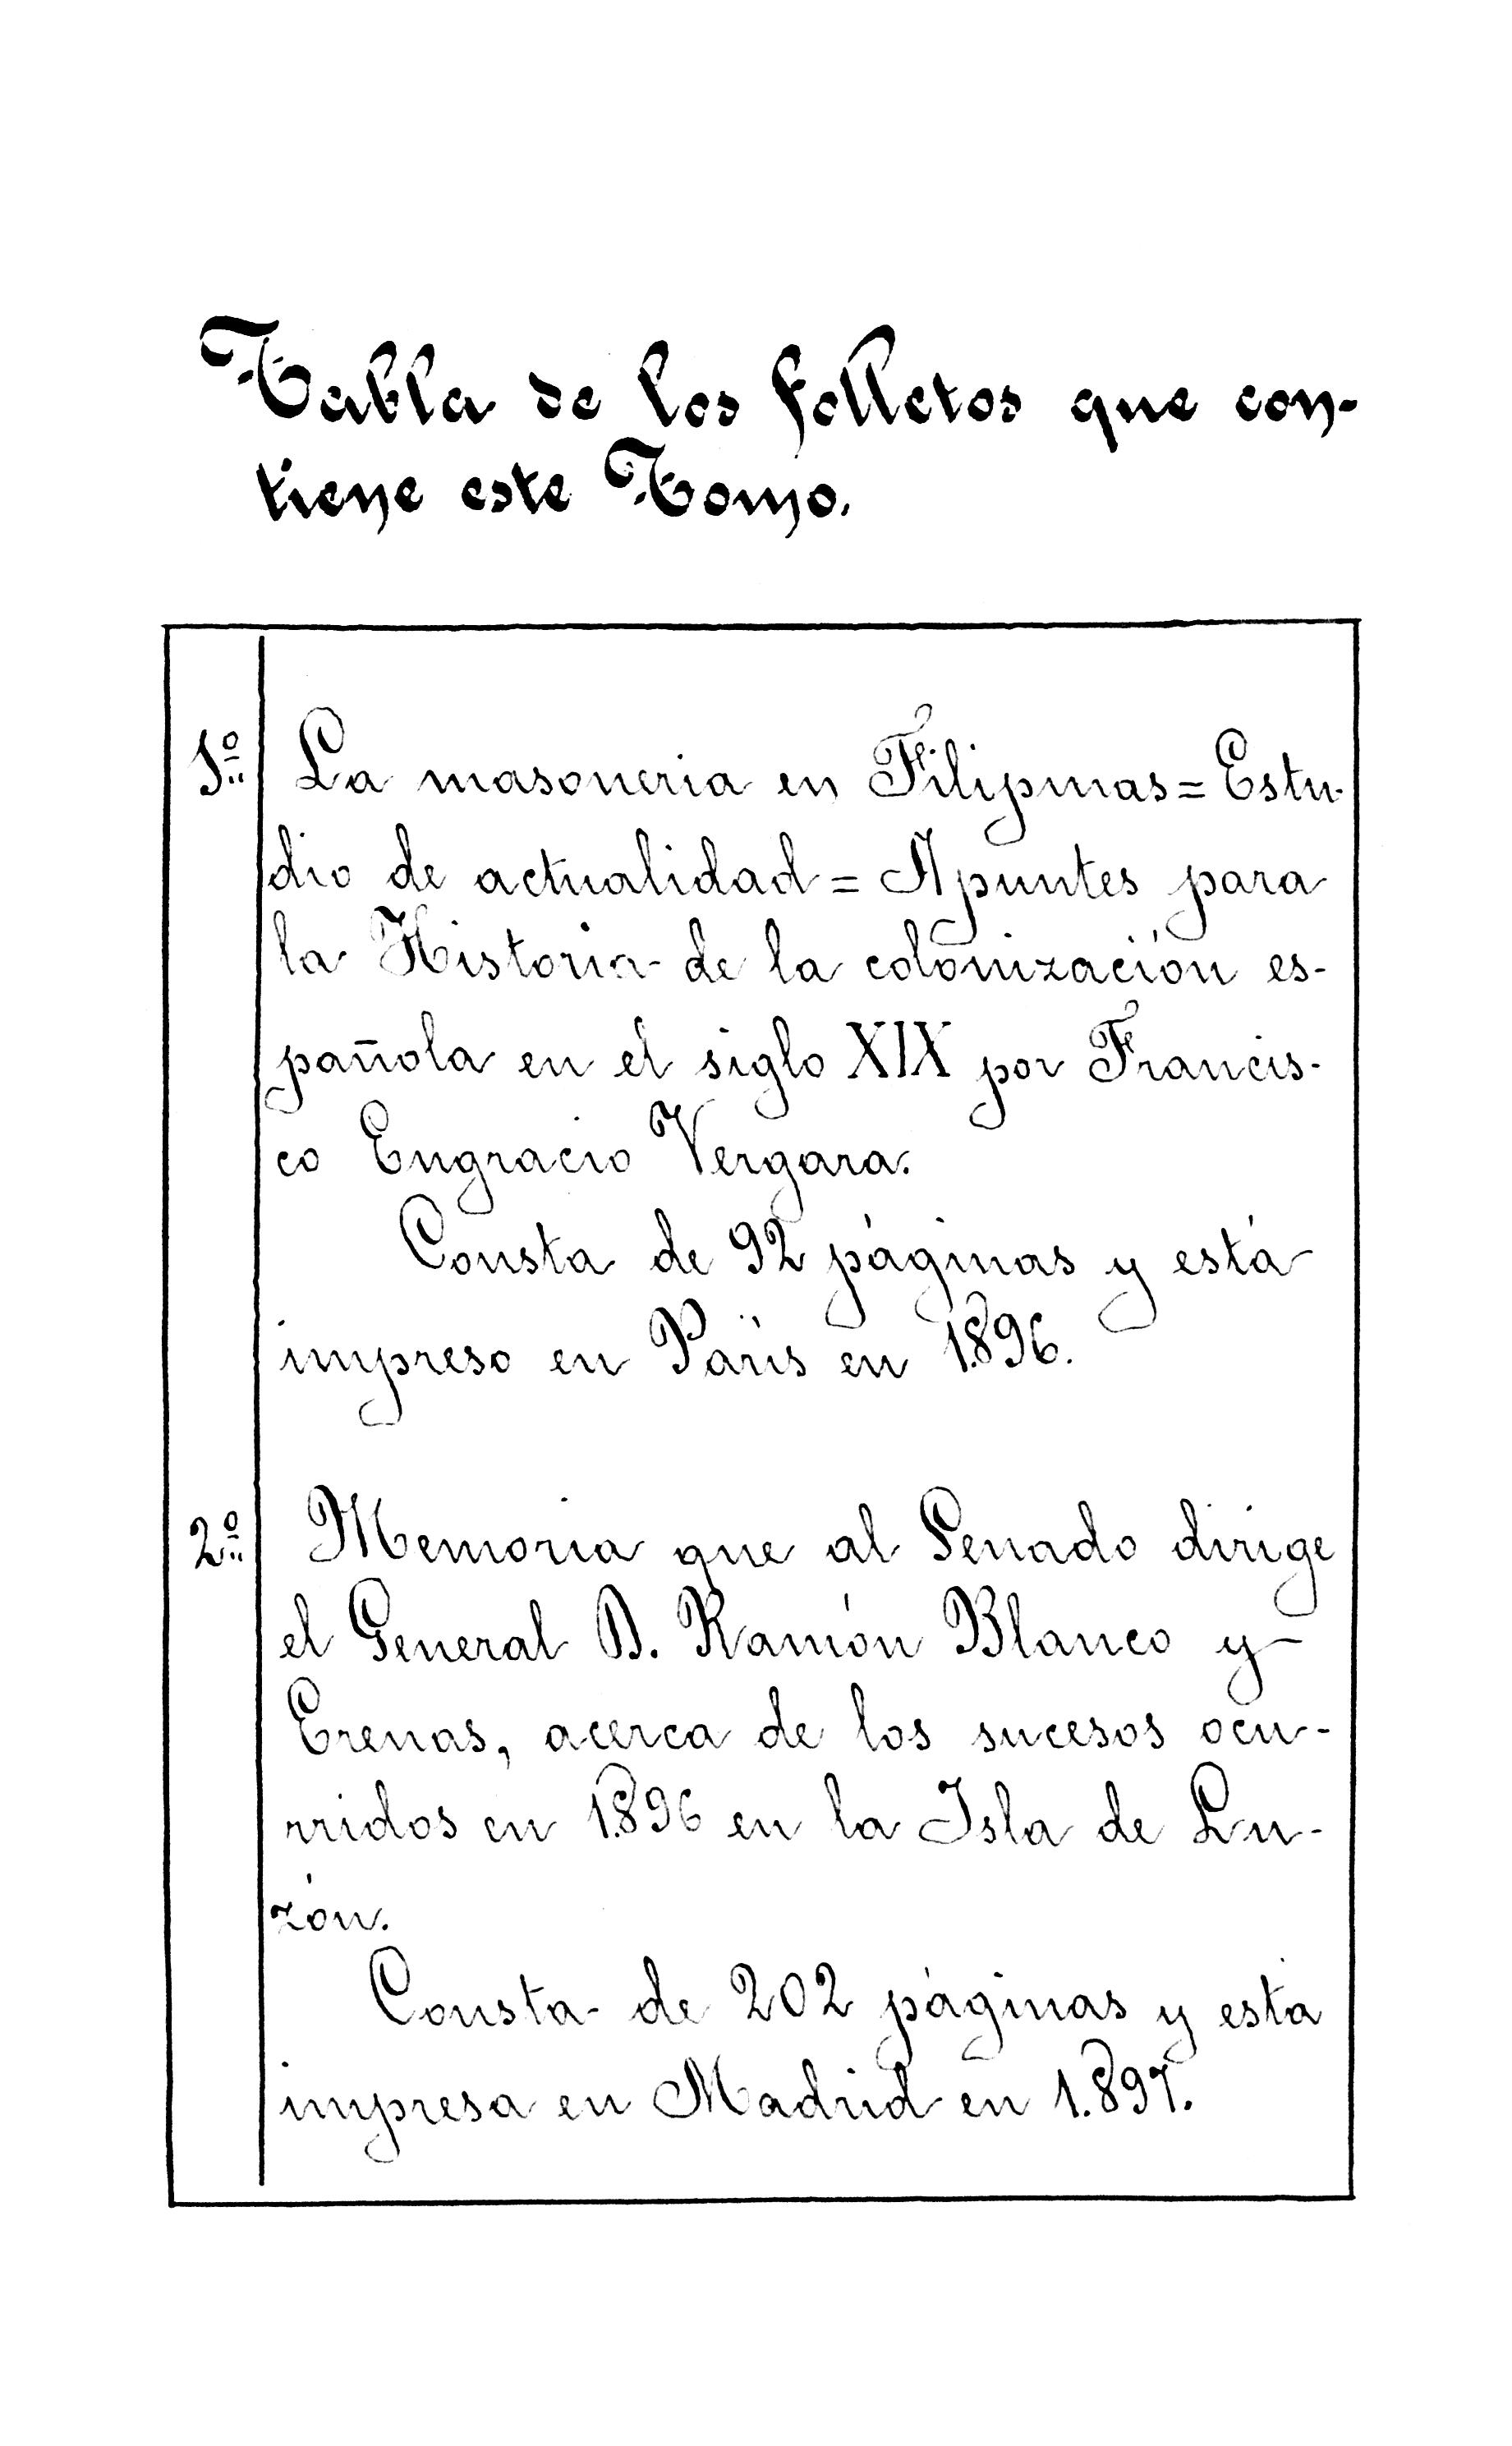 Tabla de los folletos que con-
tiene este Tomo.
1º La masoneria en Filipinas = Estu-
dio de actualidad = Apuntes para
la Historia de la colonización es-
pañola en el siglo XIX por Francis-
co Engracio Vergara.
Consta de 92 páginas y está
impreso en París en 1.896.
2º Memoria que al Senado dirige
el General D. Ramón Blanco y
Erenas, acerca de los sucesos ocu-
rridos en 1.896 en la Isla de Lu-
zón.
Consta de 202 páginas y está
impresa en Madrid en 1.897.